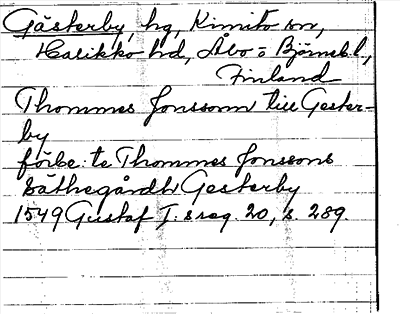 Gästerby, hg, Kimito sn,
Halikko hd, Åbo o Björneb. l.,
Finland
Thommes Jonssonn till Gester-
by
förbe: te Thommes Jonssons
Säthegårdh Gesterby
1549 Gustaf I: s reg. 20, s. 289